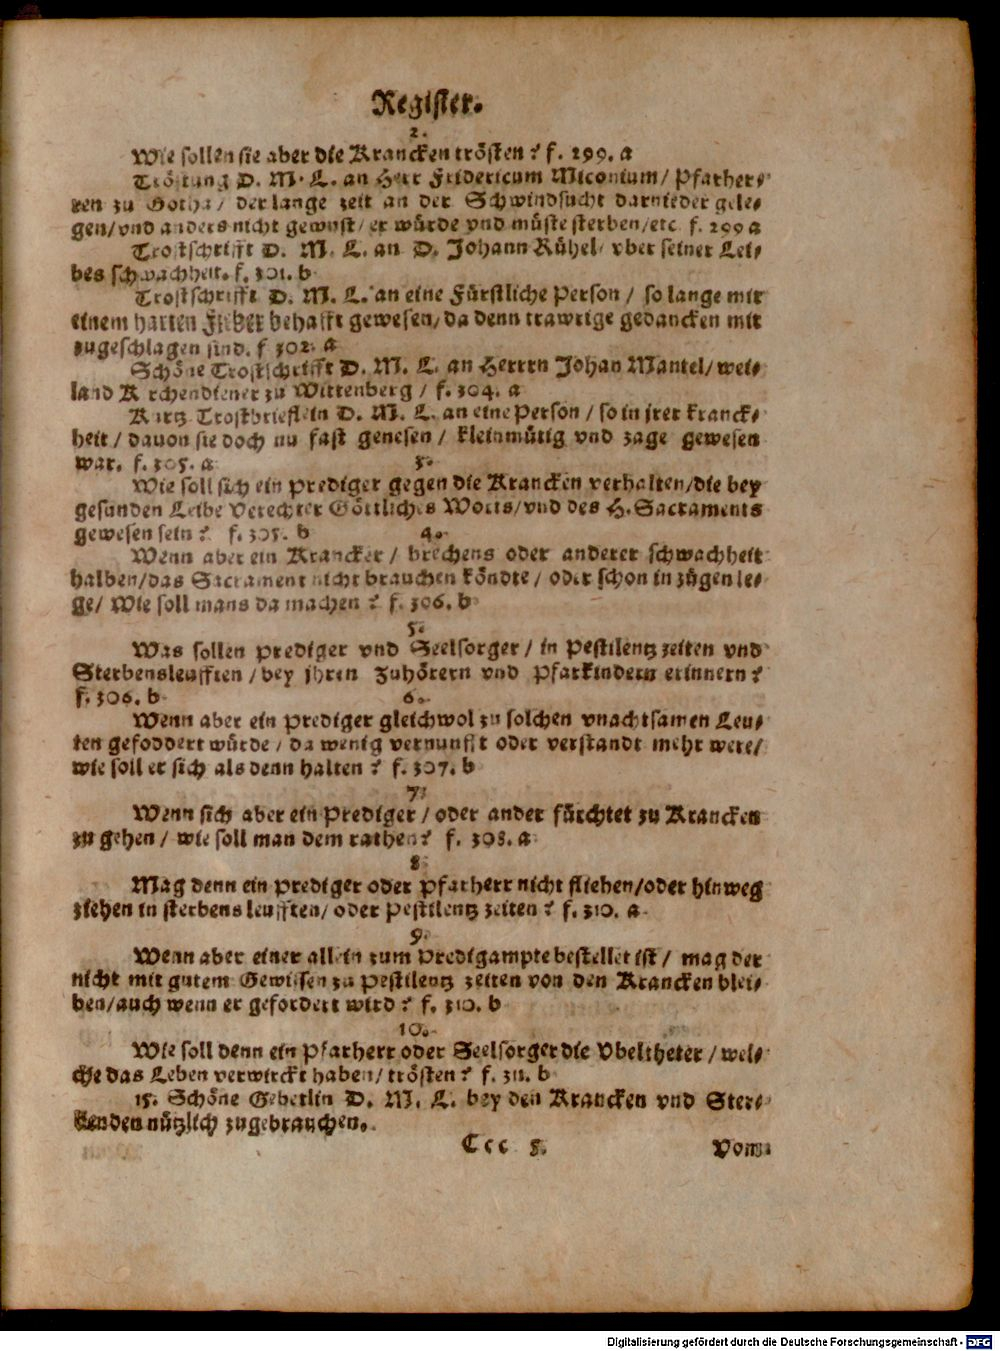 Register.
2.
Wie sollen sie aber die Krancken trösten? f. 299. a
Tröstung D. M. L. an Herr Fridericum Miconium/ Pfarher⸗
ren zu Gotha/ der lange zeit an der Schwindsucht darnieder gele⸗
gen/vnd anders nicht gewust/ er würde vnd müste sterben/etc f. 299 a
Trostschrifft D. M. L. an D. Johann Rühel/ vber seiner Lei⸗
bes schwachheit. f. 301. b
Trostschrifft D. M. L. an eine Fürstliche Person / so lange mit
einem harten Fieber behafft gewesen/ da denn trawrige gedancken mit
zugeschlagen sind. f 302. a
Schöne Trostschrifft D. M. L. an Herrrn Johan Mantel/ wei⸗
land K rchendiener zu Wittenberg / f. 304. a
Kurtz Trostbrieflein D. M. L. an eine Person / so in jrer kranck⸗
heit / dauon sie doch nu fast genesen / kleinmütig vnd zage gewesen
war. f. 305. a
3.
Wie soll sich ein prediger gegen die Krancken verhalten/die bey
gesunden Leibe Verechter Göttliches Worts/vnd des H. Sacraments
gewesen sein? f. 305. b
4.
Wenn aber ein Krancker / brechens oder anderer schwachheit
halben/das Sacrament nicht brauchen köndte / oder schon in zügen le⸗
ge/ Wie soll mans da machen? f. 306. b
5.
Was sollen prediger vnd Seelsorger / in Pestilentz zeiten vnd
Sterbensleufften / bey jhren Zuhörern vnd Pfarkindern erinnern?
f. 306. b
6.
Wenn aber ein prediger gleichwol zu solchen vnachtsamen Leu⸗
ten gefoddert würde / da wenig vernunfft oder verstandt mehr were/
wie soll er sich als denn halten? f. 307. b
7.
Wenn sich aber ein Prediger / oder ander fürchtet zu Krancken
zu gehen / wie soll man dem rathen? f. 308. a
8.
Mag denn ein prediger oder Pfarherr nicht fliehen/oder hinweg
ziehen in sterbens leufften/ oder Pestilentz zeiten? f. 310. a
9.
Wenn aber einer allein zum Predigampte bestellet ist / mag der
nicht mit gutem Gewissen zu Pestilentz zeiten von den Krancken blei⸗
ben/auch wenn er gefordert wird? f. 310. b
10.
Wie soll denn ein Pfarherr oder Seelsorger die Vbeltheter / wel⸗
che das Leben verwirckt haben/ trösten? f. 311. b
15. Schöne Gebetlin D. M. L. bey den Krancken vnd Ster⸗
benden nützlich zugebrauchen.
Ccc 3.
Vom
Digitalisierung gefördert durch die Deutsche Forschungsgemeinschaft - DFG